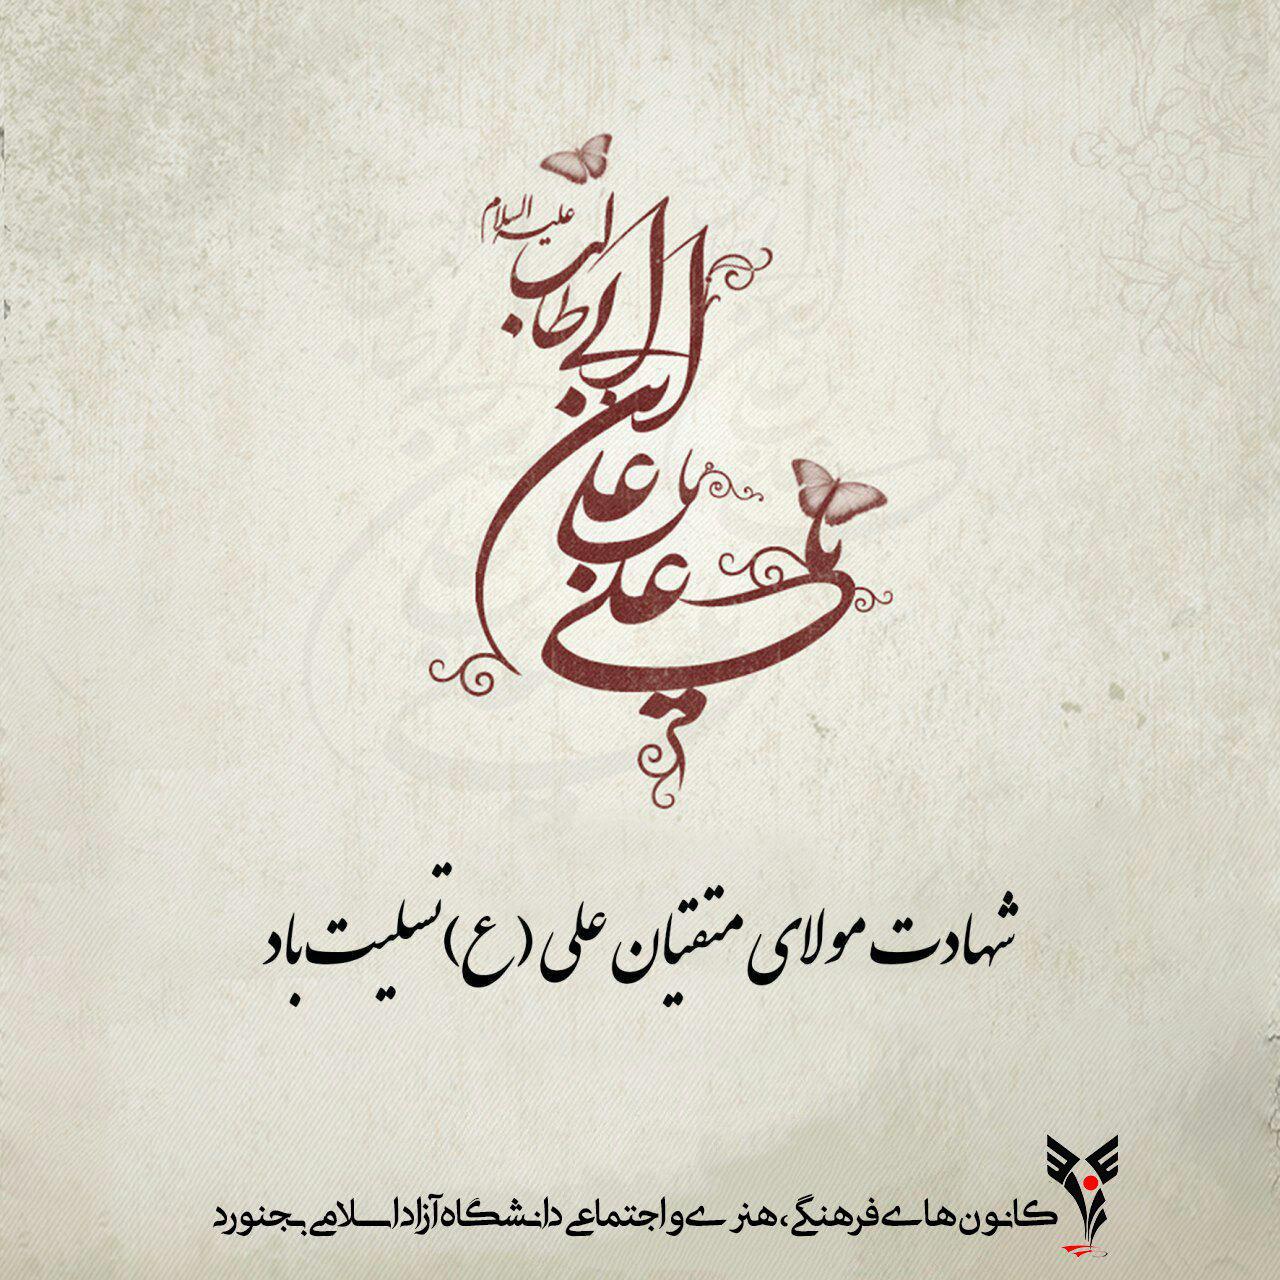 یا علی
یا علی
ابن ابی طالب
علیه السلام
شهادت مولای متقیان علی (ع) تسلیت باد
کانون های فرهنگی، هنری و اجتماعی دانشگاه آزاد اسلامی بجنورد